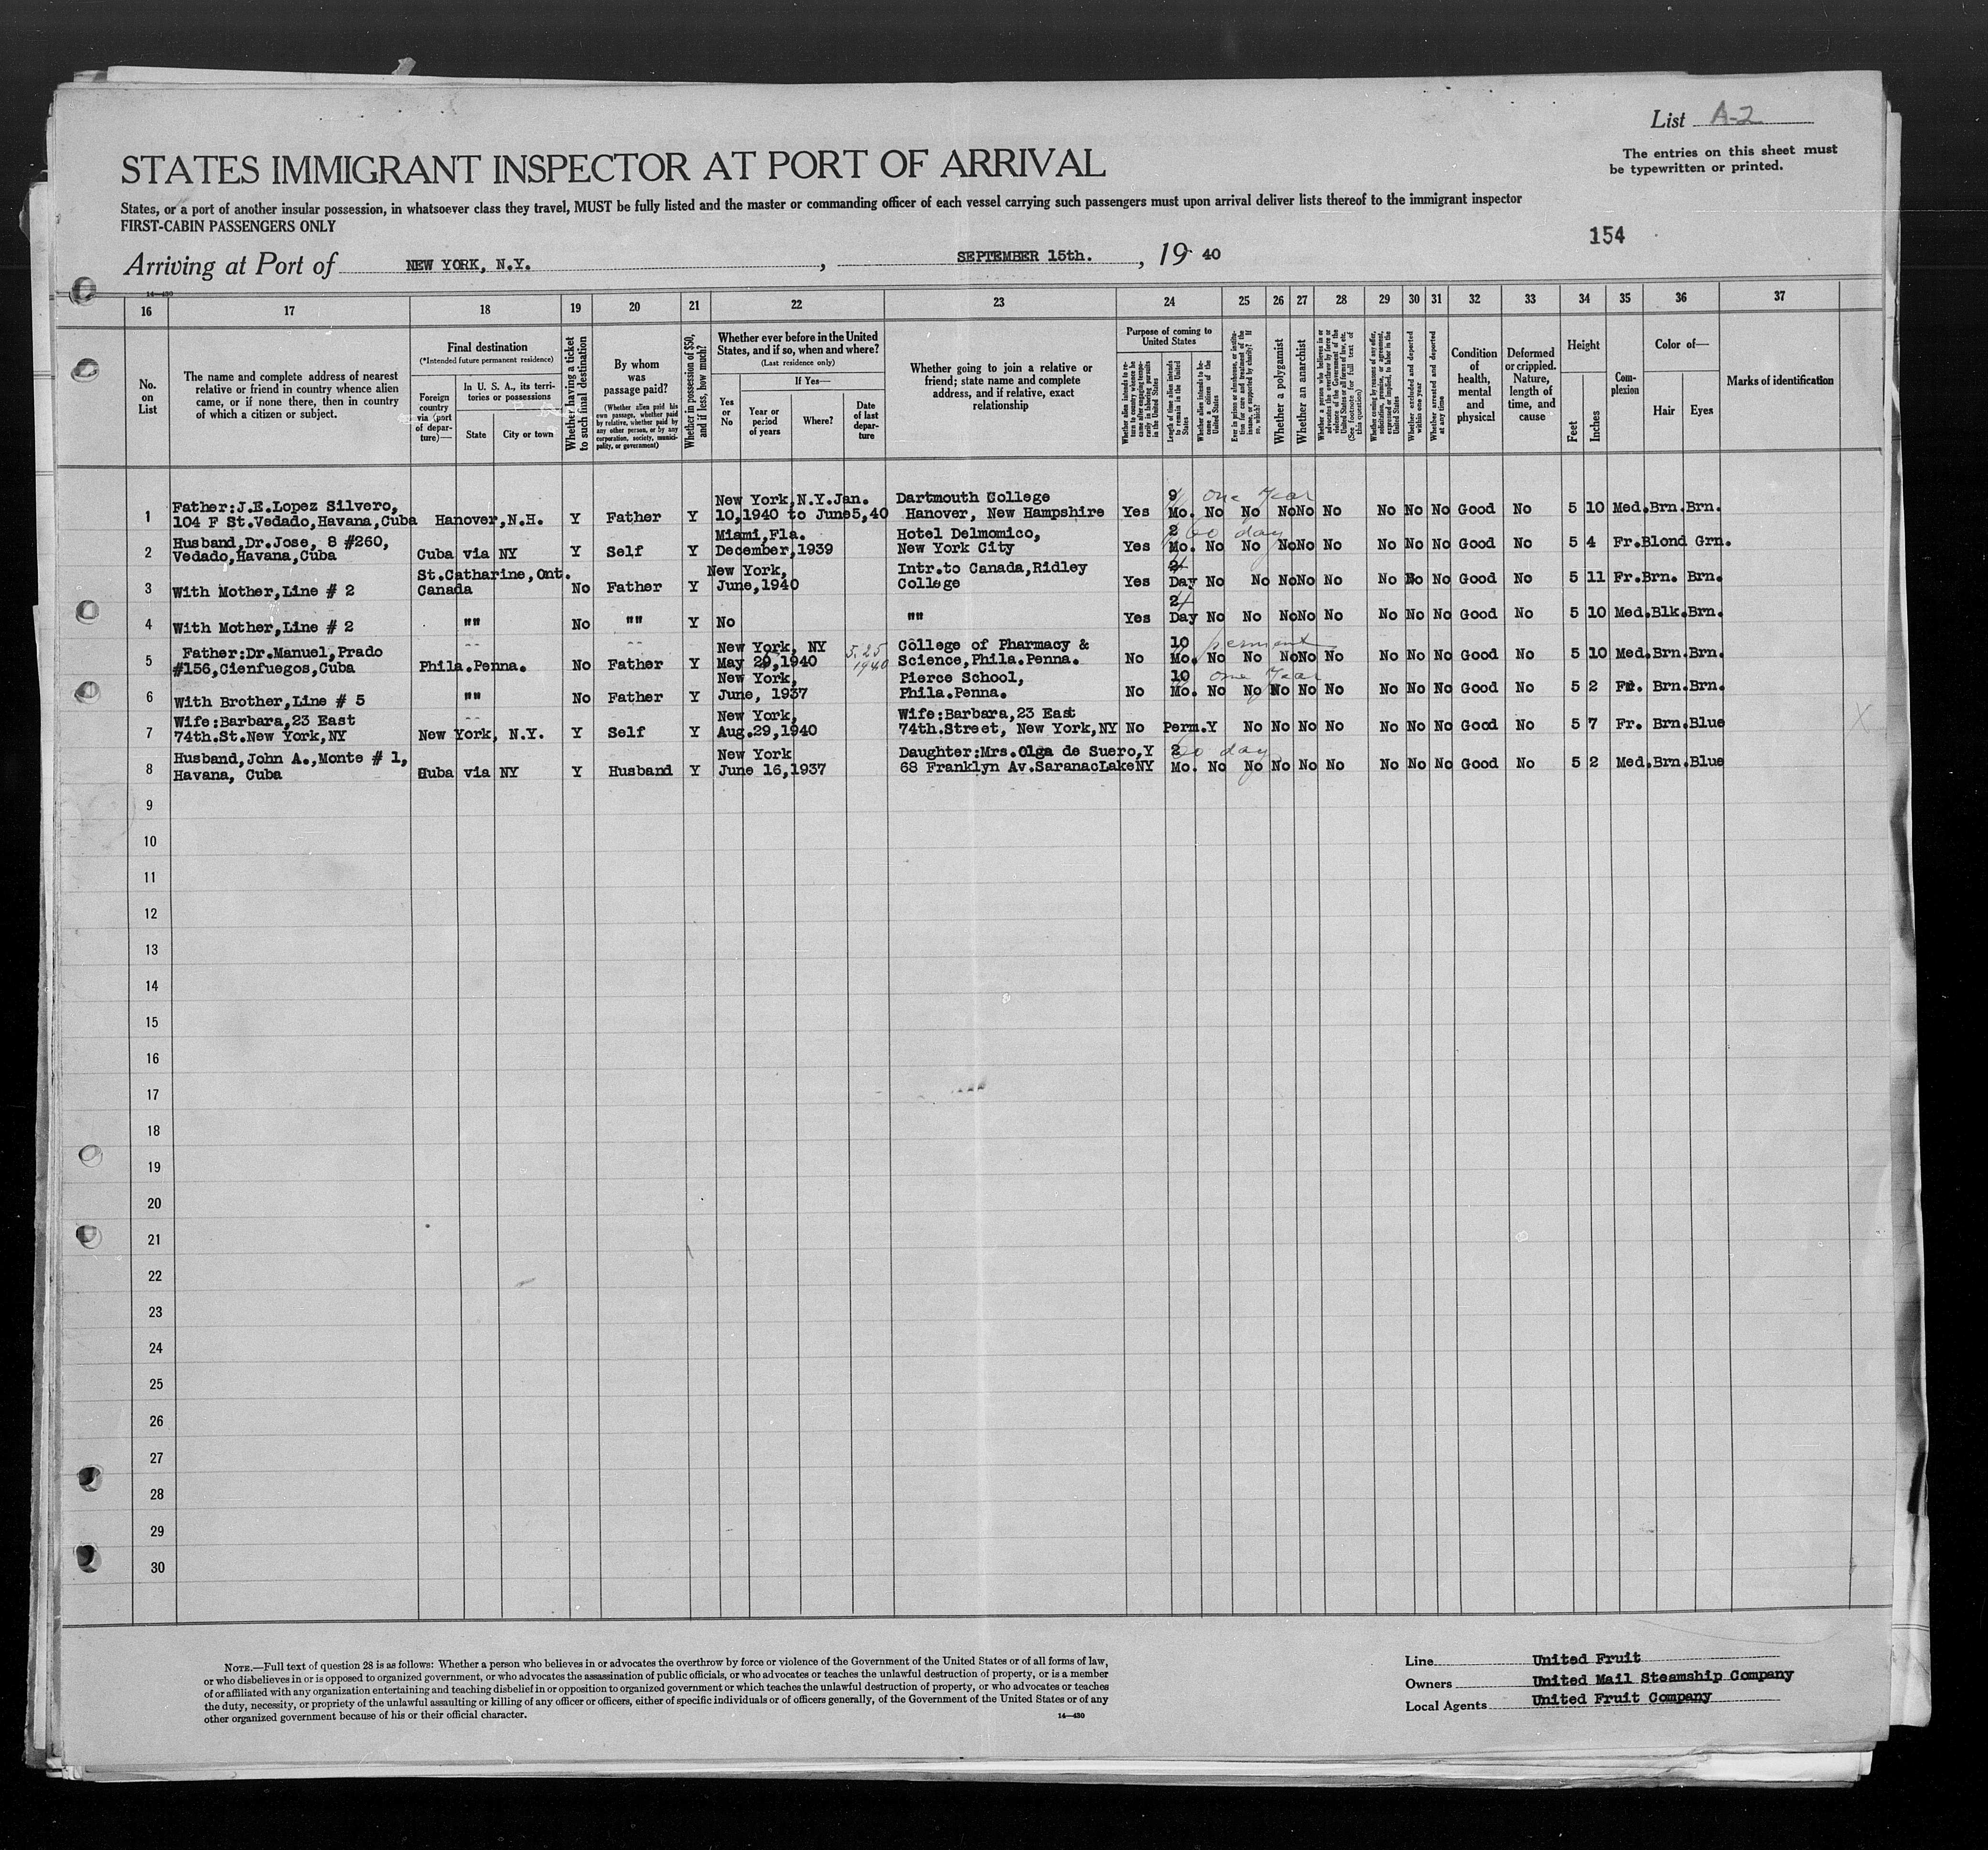 List A-2
The entries on this sheet must
be typewritten or printed.
STATES IMMIGRANT INSPECTOR AT PORT OF ARRIVAL
States, or a port of another insular possession, in whatsoever class they travel, MUST be fully listed and the master or commanding officer of each vessel carrying such passengers must upon arrival deliver lists thereof to the immigrant inspector
FIRST-CABIN PASSENGERS ONLY
154
Arriving at Port of NEW YORK, N.Y. , SEPTEMBER 15th. , 19 40
14—430
16 17 18 19 20 21 22 23 24 25 26 27 28 29 30 31 32 33 34 35 36 37
No. on List
The name and complete address of nearest
relative or friend in country whence alien
came, or if none there, then in country
of which a citizen or subject.
Final destination
(*Intended future permanent residence)
Foreign country via (port of departure)—
In U. S. A., its territories or possessions
State
City or town
Whether having a ticket to such final destination
By whom was passage paid?
(Whether alien paid his own passage, whether paid by relative, whether paid by any other person, or by any corporation, society, municipality, or government)
Whether in possession of $50, and if less, how much?
Whether ever before in the United States, and if so, when and where?
(Last residence only)
Yes or No
If Yes—
Year or period of years
Where?
Date of last departure
Whether going to join a relative or
friend; state name and complete
address, and if relative, exact
relationship
Purpose of coming to United States
Whether alien intends to return to country whence he came after engaging temporarily in laboring pursuits in the United States
Length of time alien intends to remain in the United States
Whether alien intends to become a citizen of the United States
Ever in prison or almshouse, or institution for care and treatment of the insane, or supported by charity? If so, which?
Whether a polygamist
Whether an anarchist
Whether a person who believes in or advocates the overthrow by force or violence of the Government of the United States or all forms of law, etc. (See footnote for full text of this question)
Whether coming by reasons of any offer, solicitation, promise, or agreement, expressed or implied, to labor in the United States
Whether excluded and deported within one year
Whether arrested and deported at any time
Condition of health, mental and physical
Deformed or crippled. Nature, length of time, and cause
Height
Feet
Inches
Complexion
Color of—
Hair
Eyes
Marks of identification
1 Father:J.E.Lopez Silvero, New York,N.Y.Jan. Dartmouth College 9 one Year
104 F St.Vedado,Havana,Cuba Hanover,N.H. Y Father Y 10,1940 to June5,40 Hanover, New Hampshire Yes Mo. No No No No No No No No Good No 5 10 Med.Brn.Brn.
2 Husband,Dr.Jose, 8 #260, Miami,Fla. Hotel Delmomico, 2 60 day
Vedado,Havana,Cuba Cuba via NY Y Self Y December,1939 New York City Yes Mo. No No No No No No No No Good No 5 4 Fr.Blond Grn.
3 St.Catharine,Ont. New York, Intr.to Canada,Ridley 2
With Mother,Line # 2 Canada No Father Y June,1940 College Yes Day No No No No No No No No Good No 5 11 Fr.Brn. Brn.
4 With Mother,Line # 2 "" No "" Y No "" Yes 2 Day No No No No No No No No Good No 5 10 Med.Blk.Brn.
5 Father:Dr.Manuel,Prado New York, NY 5.25 College of Pharmacy & 10 perment
#156,Cienfuegos,Cuba Phila.Penna. No Father Y May 29,1940 1940 Science,Phila.Penna. No Mo. No No No No No No No No Good No 5 10 Med.Brn.Brn.
6 New York, Pierce School, 10 one Year
With Brother,Line # 5 "" No Father Y June, 1937 Phila.Penna. No Mo. No No No No No No No No Good No 5 2 Fr. Brn.Brn.
7 Wife:Barbara,23 East New York, Wife:Barbara,23 East
74th.St.New York,NY New York, N.Y. Y Self Y Aug.29,1940 74th.Street, New York,NY No Perm.Y No No No No No No No Good No 5 7 Fr. Brn.Blue
8 Husband,John A.,Monte # 1, New York Daughter:Mrs.Olga de Suero,Y 2 60 day
Havana, Cuba Cuba via NY Y Husband Y June 16,1937 68 Franklyn Av.SaranacLakeNY Mo. No No No No No No No No Good No 5 2 Med.Brn.Blue
9
10
11
12
13
14
15
16
17
18
19
20
21
22
23
24
25
26
27
28
29
30
NOTE.—Full text of question 28 is as follows: Whether a person who believes in or advocates the overthrow by force or violence of the Government of the United States or of all forms of law,
or who disbelieves in or is opposed to organized government, or who advocates the assassination of public officials, or who advocates or teaches the unlawful destruction of property, or is a member
of or affiliated with any organization entertaining and teaching disbelief in or opposition to organized government or which teaches the unlawful destruction of property, or who advocates or teaches
the duty, necessity, or propriety of the unlawful assaulting or killing of any officer or officers, either of specific individuals or of officers generally, of the Government of the United States or of any
other organized government because of his or their official character.
14—430
Line United Fruit
Owners United Mail Steamship Company
Local Agents United Fruit Company